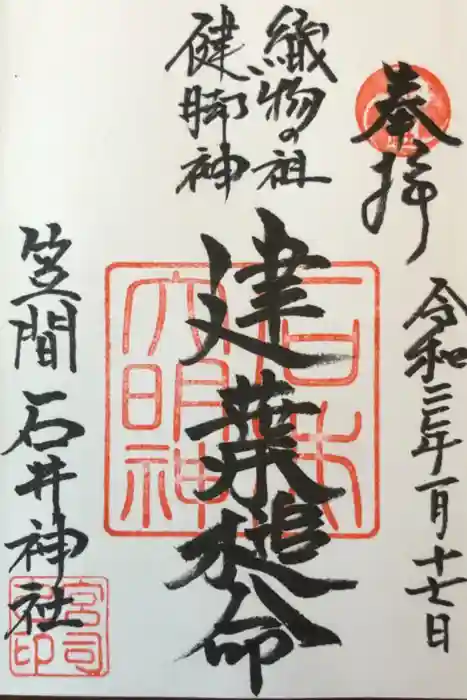 奉拝
令和三年一月十七日
織物の祖
健脚神
建葉槌命
石井
大明神
笠間 石井神社
宮司
之印